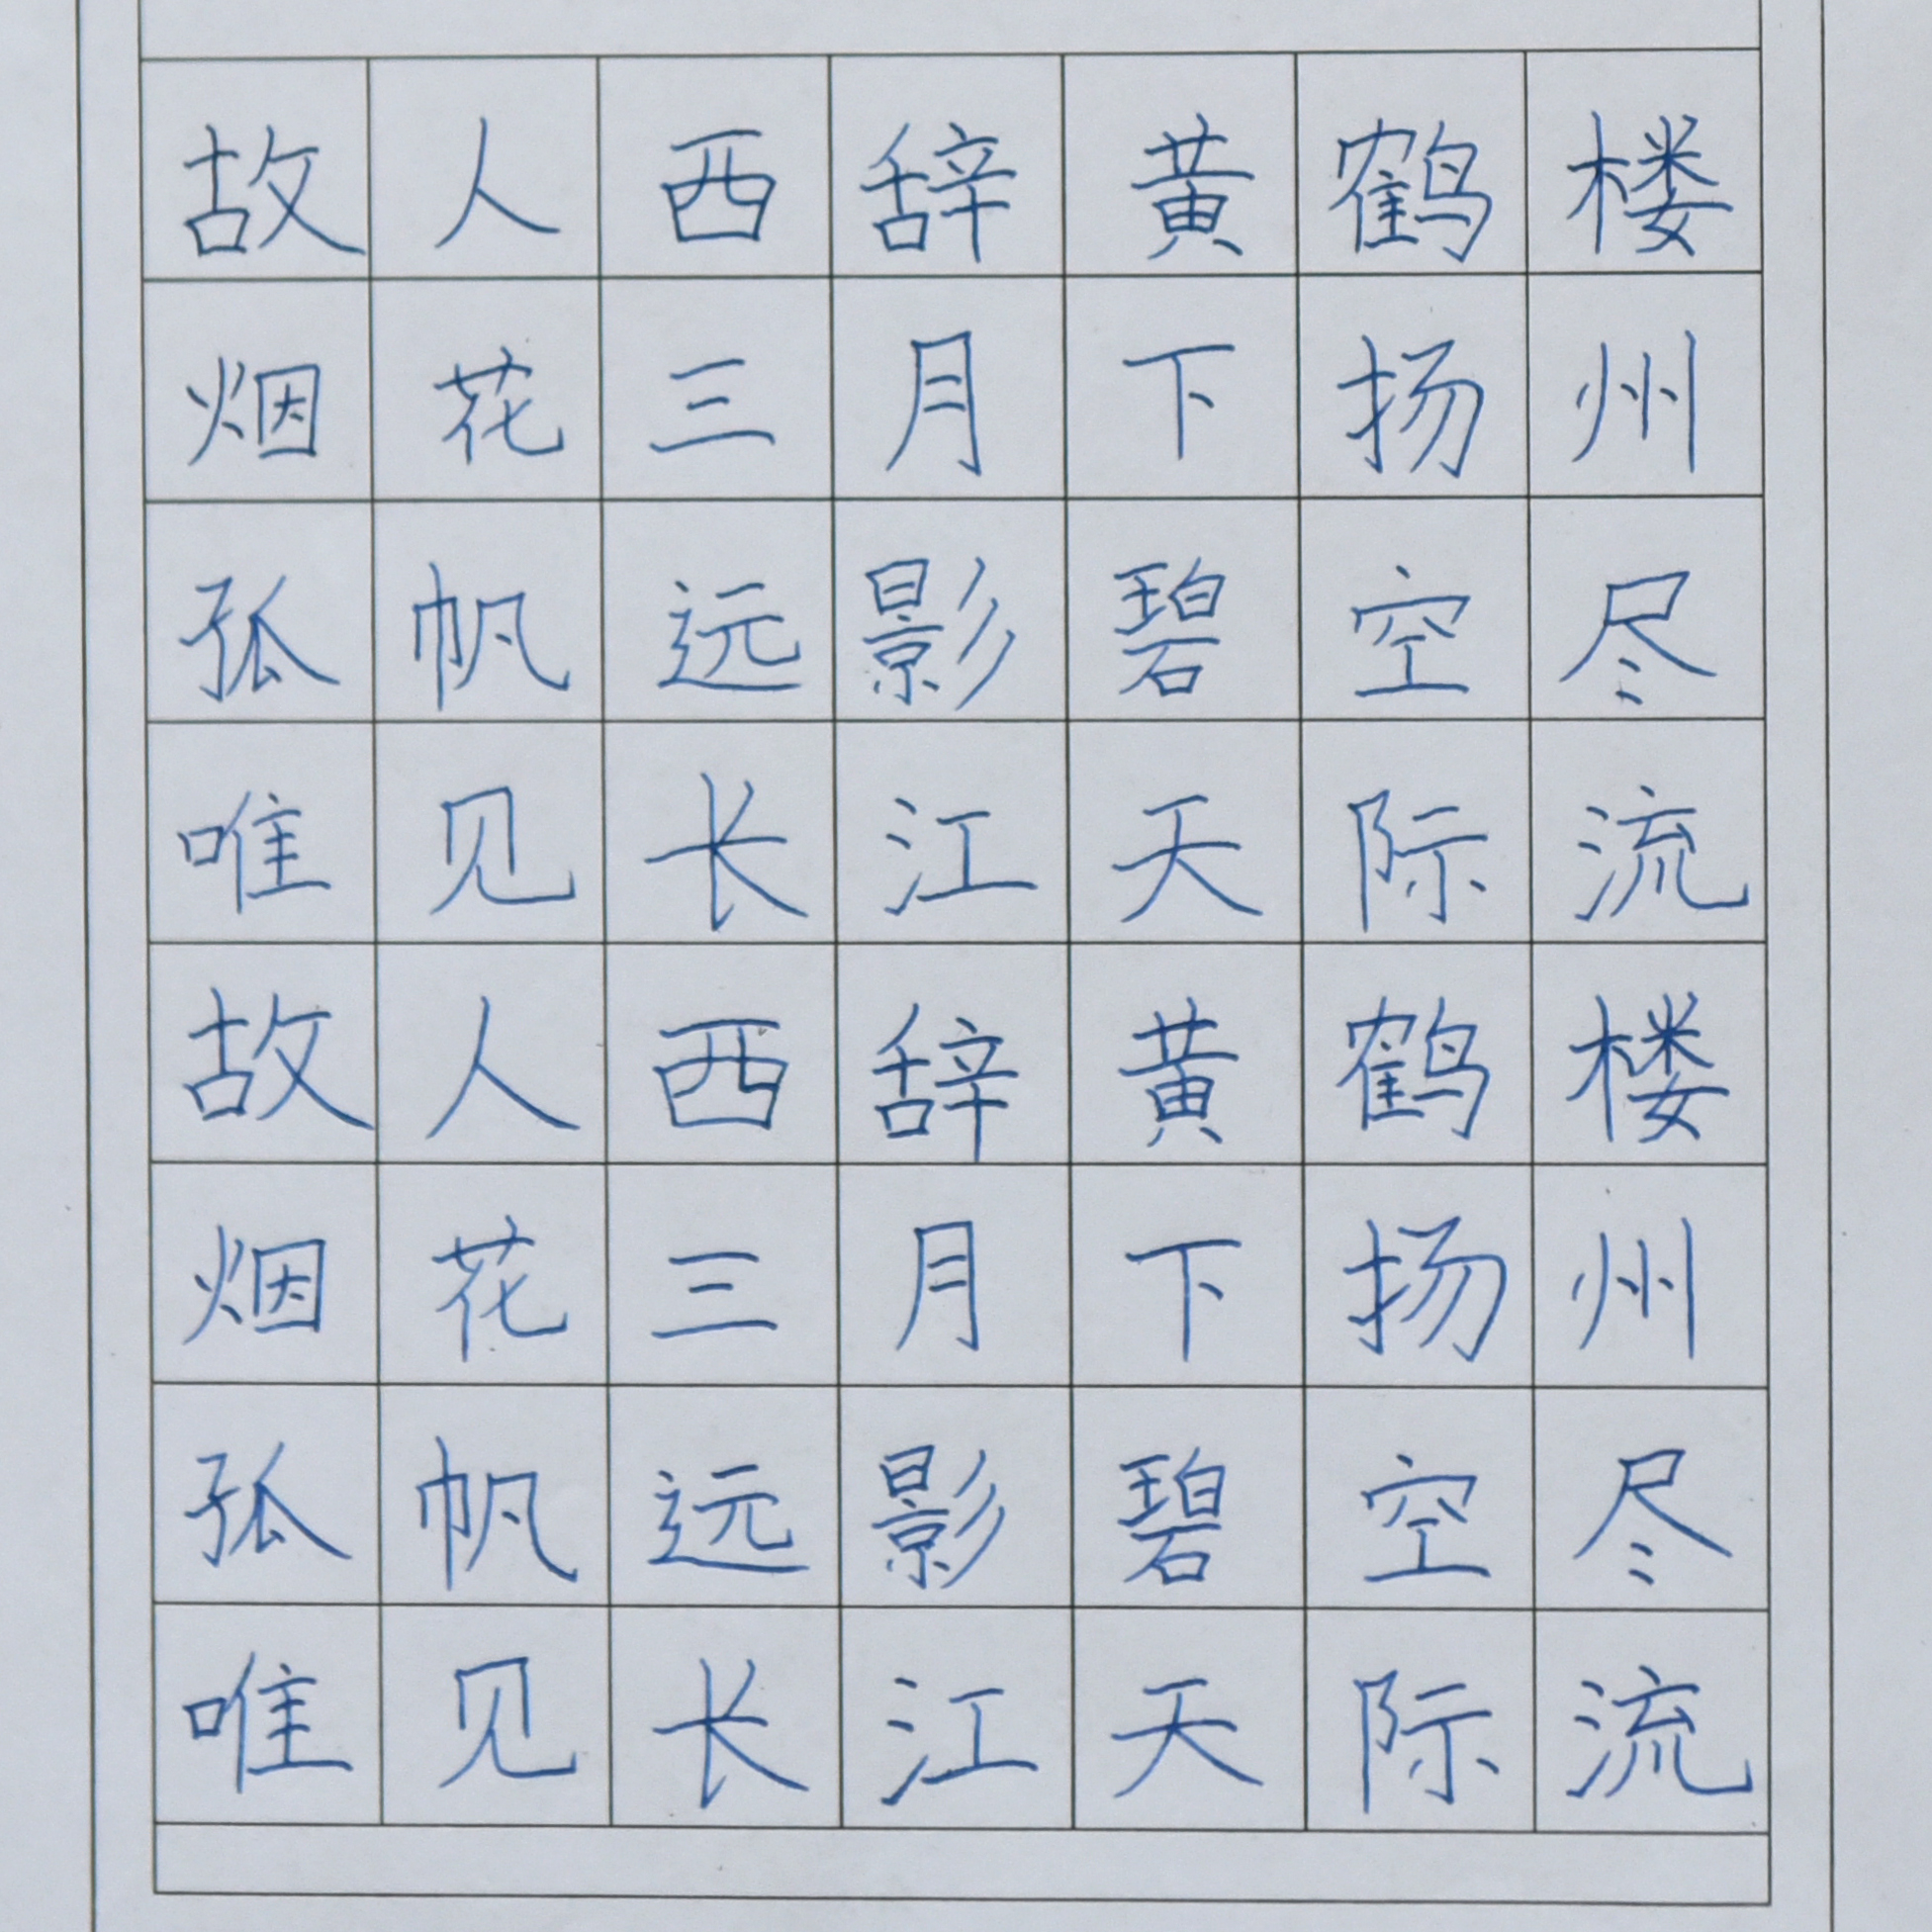 故人西辞黄鹤楼
烟花三月下扬州
孤帆远影碧空尽
唯见长江天际流
故人西辞黄鹤楼
烟花三月下扬州
孤帆远影碧空尽
唯见长江天际流